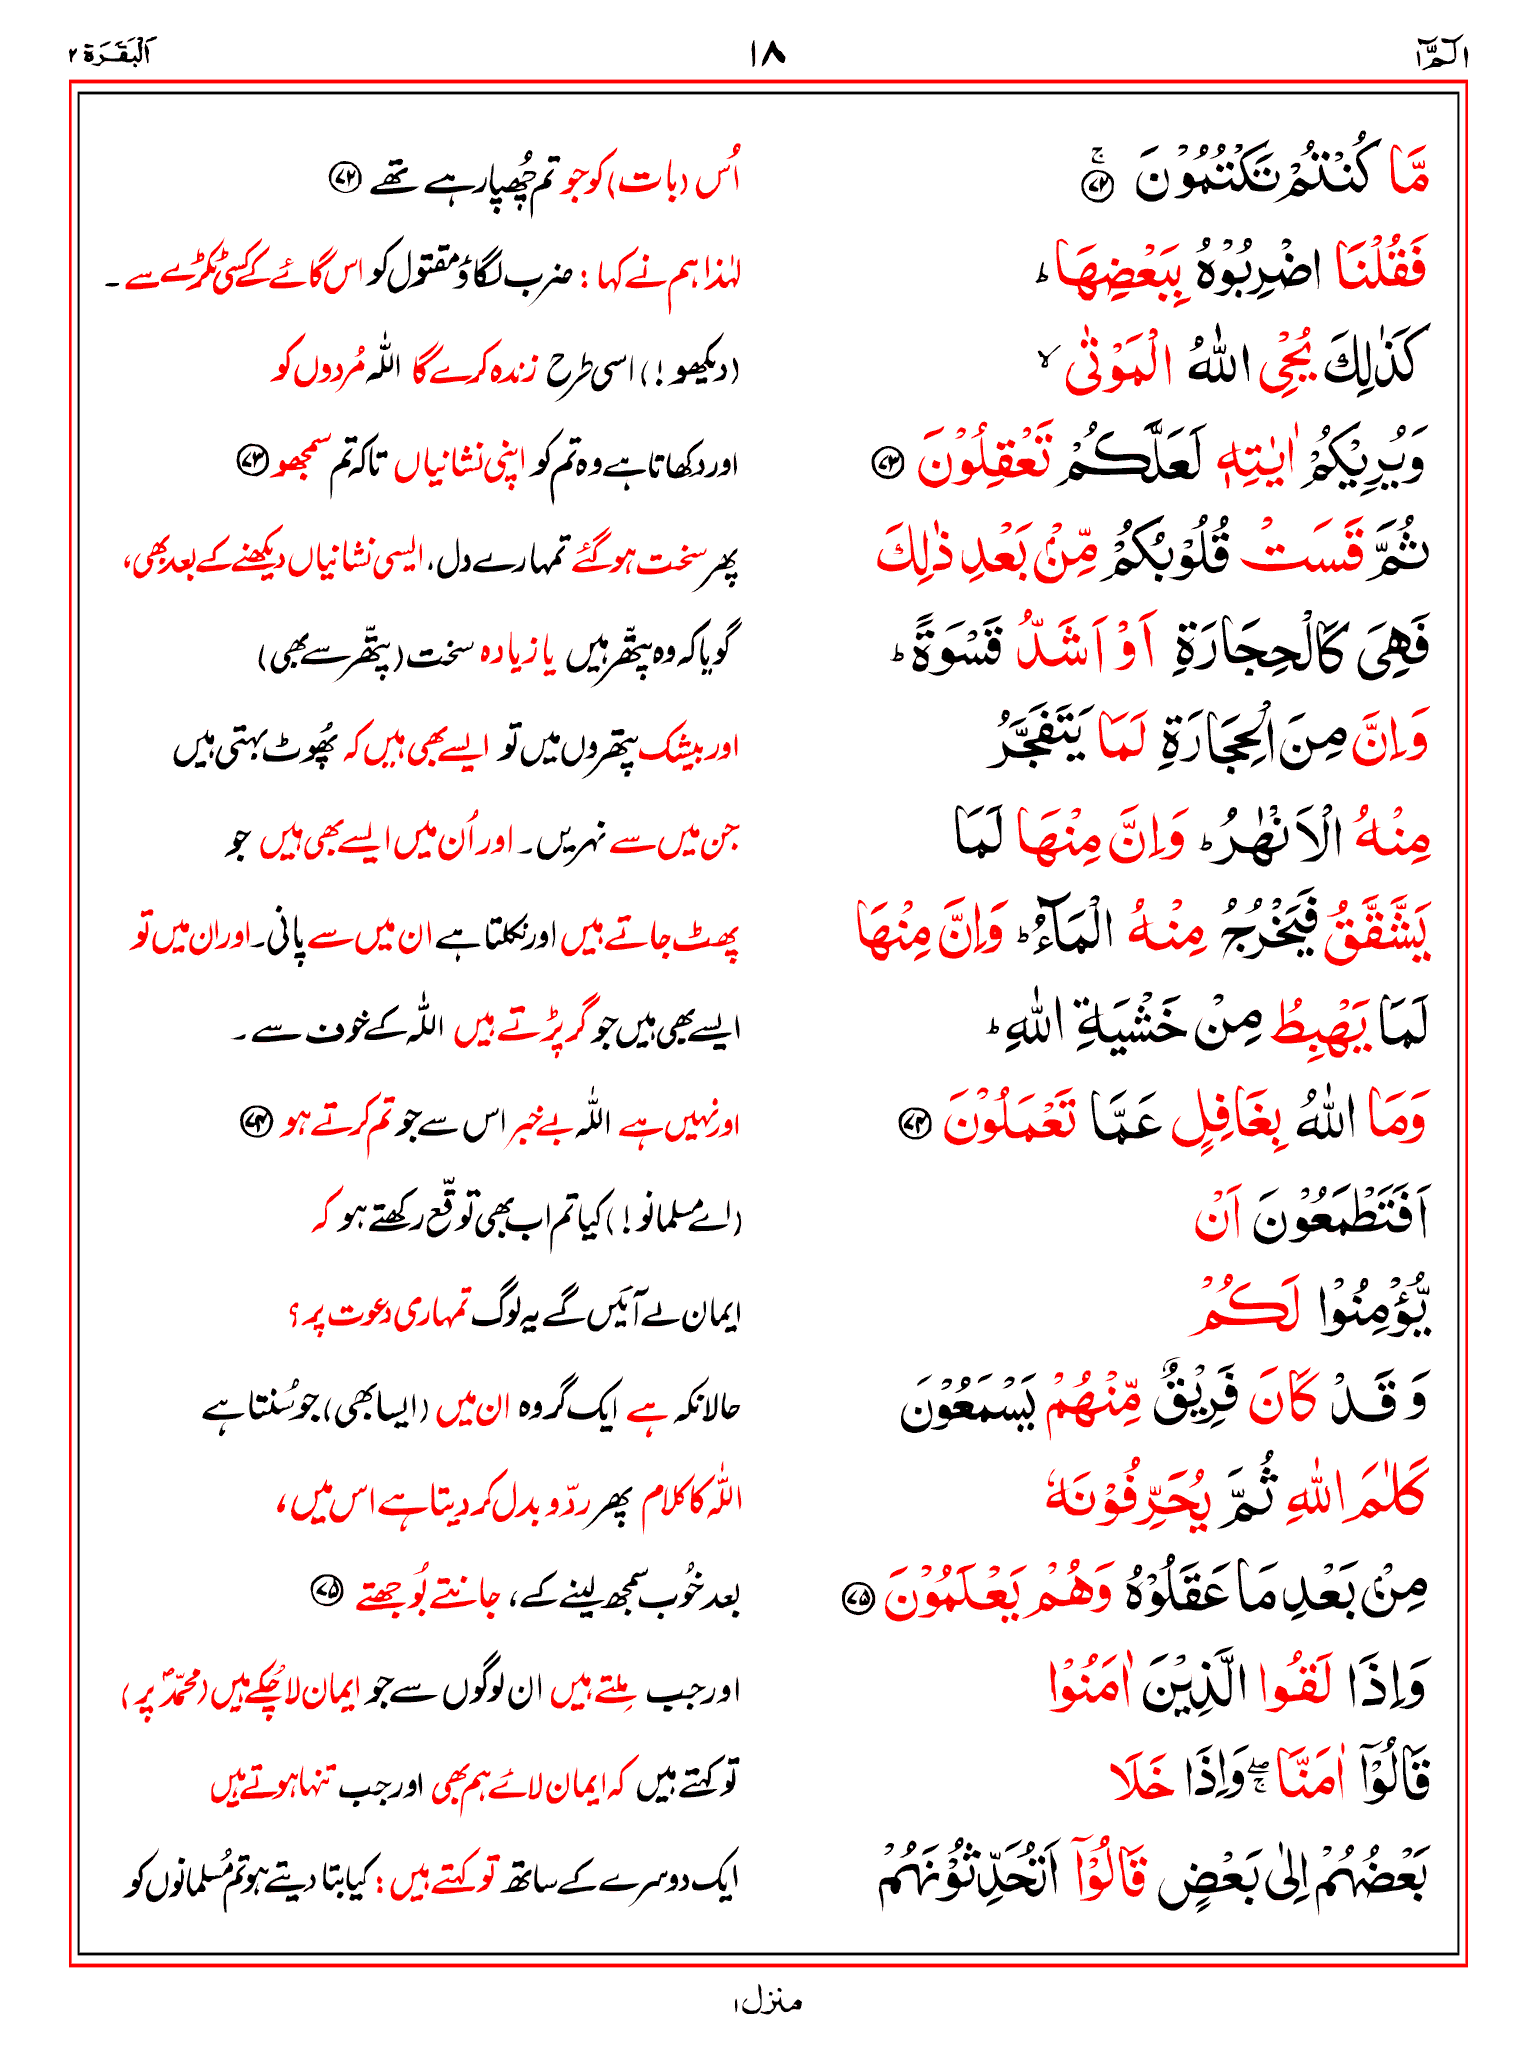 الٓمّٓ ۱ ۱۸ اَلْبَقَرَة ۲
مَّا كُنْتُمْ تَكْتُمُوْنَ ۚ ﴿۷۲﴾ اُس (بات) کو جو تم چُھپا رہے تھے ﴿۷۲﴾
فَقُلْنَا اضْرِبُوْهُ بِبَعْضِهَا ؕ لہٰذا ہم نے کہا : ضرب لگاؤ مقتول کو اس گائے کے کسی ٹکڑے سے ۔
كَذٰلِكَ يُحْيِ اللّٰهُ الْمَوْتٰى ۙ (دیکھو !) اسی طرح زندہ کرے گا اللّٰہ مُردوں کو
وَيُرِيْكُمْ اٰيٰتِهٖ لَعَلَّكُمْ تَعْقِلُوْنَ ﴿۷۳﴾ اور دکھاتا ہے وہ تم کو اپنی نشانیاں تاکہ تم سمجھو ﴿۷۳﴾
ثُمَّ قَسَتْ قُلُوْبُكُمْ مِّنْۢ بَعْدِ ذٰلِكَ پھر سخت ہو گئے تمہارے دل، ایسی نشانیاں دیکھنے کے بعد بھی،
فَهِيَ كَالْحِجَارَةِ اَوْ اَشَدُّ قَسْوَةً ؕ گویا کہ وہ پتّھر ہیں یا زیادہ سخت (پتّھر سے بھی)
وَاِنَّ مِنَ الْحِجَارَةِ لَمَا يَتَفَجَّرُ اور بیشک پتھروں میں تو ایسے بھی ہیں کہ پُھوٹ بہتی ہیں
مِنْهُ الْاَنْهٰرُ ؕ وَاِنَّ مِنْهَا لَمَا جن میں سے نہریں۔ اور اُن میں ایسے بھی ہیں جو
يَشَّقَّقُ فَيَخْرُجُ مِنْهُ الْمَآءُ ؕ وَاِنَّ مِنْهَا پھٹ جاتے ہیں اور نکلتا ہے ان میں سے پانی۔ اور ان میں تو
لَمَا يَهْبِطُ مِنْ خَشْيَةِ اللّٰهِ ؕ ایسے بھی ہیں جو گر پڑتے ہیں اللّٰہ کے خوف سے ۔
وَمَا اللّٰهُ بِغَافِلٍ عَمَّا تَعْمَلُوْنَ ﴿۷۴﴾ اور نہیں ہے اللّٰہ بے خبر اس سے جو تم کرتے ہو ﴿۷۴﴾
اَفَتَطْمَعُوْنَ اَنْ (اے مسلمانو !) کیا تم اب بھی توقّع رکھتے ہو کہ
يُّؤْمِنُوْا لَكُمْ ایمان لے آئیں گے یہ لوگ تمہاری دعوت پر ؟
وَ قَدْ كَانَ فَرِيْقٌ مِّنْهُمْ يَسْمَعُوْنَ حالانکہ ہے ایک گروہ ان میں (ایسا بھی) جو سُنتا ہے
كَلٰمَ اللّٰهِ ثُمَّ يُحَرِّفُوْنَهٗ اللّٰہ کا کلام پھر ردّ و بدل کر دیتا ہے اس میں،
مِنْۢ بَعْدِ مَا عَقَلُوْهُ وَهُمْ يَعْلَمُوْنَ ﴿۷۵﴾ بعد خُوب سمجھ لینے کے، جانتے بُوجھتے ﴿۷۵﴾
وَاِذَا لَقُوا الَّذِيْنَ اٰمَنُوْا اور جب مِلتے ہیں ان لوگوں سے جو ایمان لا چُکے ہیں (محمّدؐ پر)
قَالُوْٓا اٰمَنَّا ۖۚ وَاِذَا خَلَا تو کہتے ہیں کہ ایمان لائے ہم بھی اور جب تنہا ہوتے ہیں
بَعْضُهُمْ اِلٰى بَعْضٍ قَالُوْٓا اَتُحَدِّثُوْنَهُمْ ایک دوسرے کے ساتھ تو کہتے ہیں : کیا بتا دیتے ہو تم مُسلمانوں کو
منزل ۱